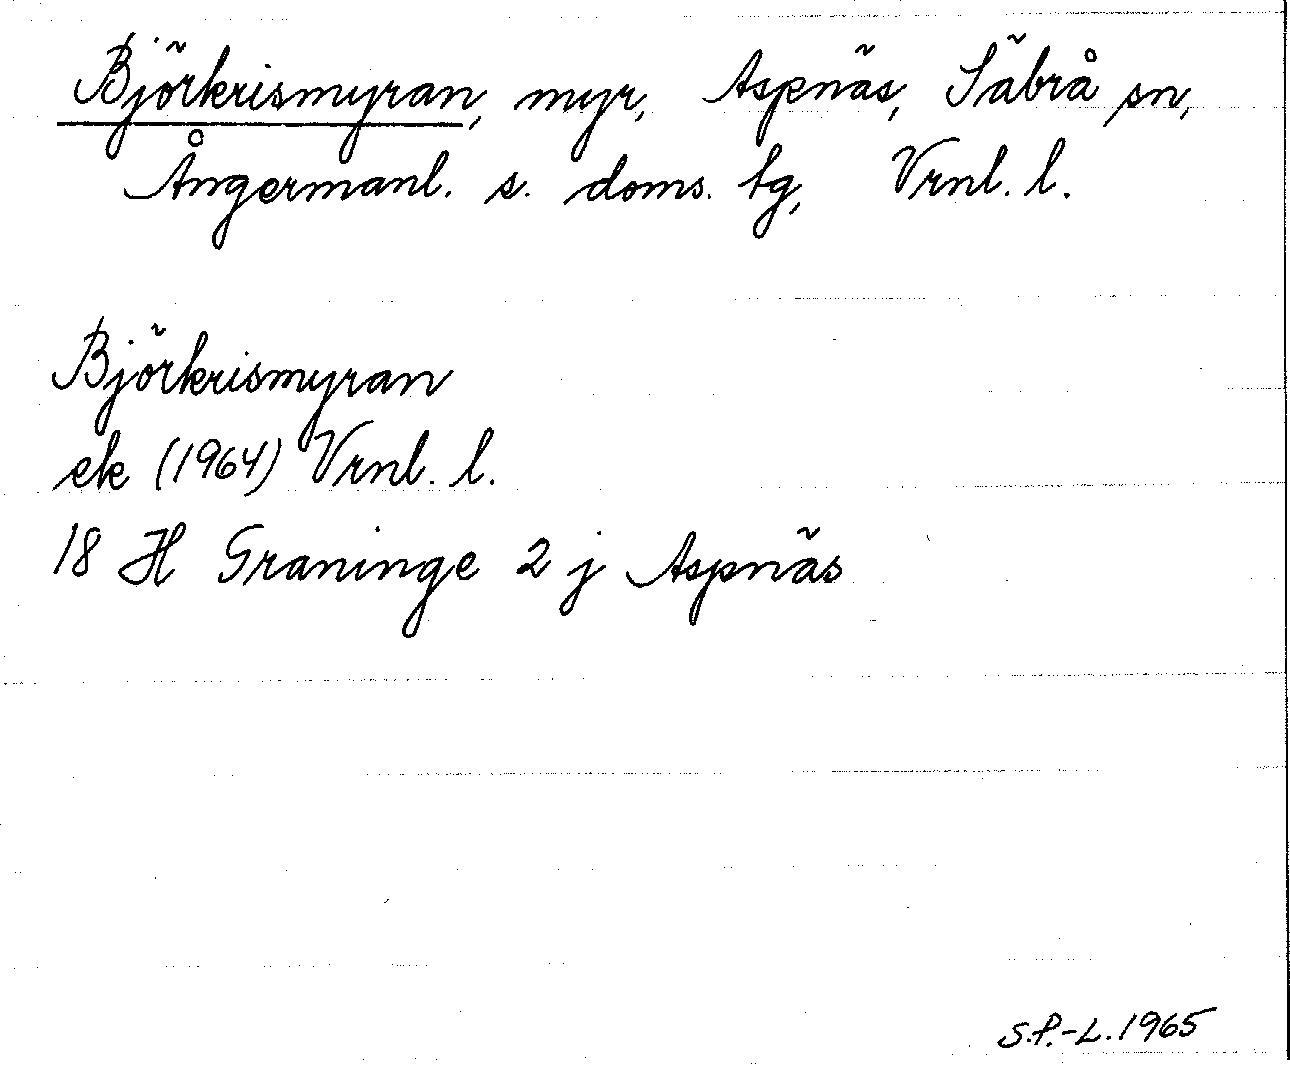 Björkrismyran, myr, Aspnäs, Säbrå sn,
Ångermanl. s. doms. tg, Vrnl. l.
Björkrismyran
ek (1964) Vrnl. l.
18 H Graninge 2 j Aspnäs
S.P.-L. 1965